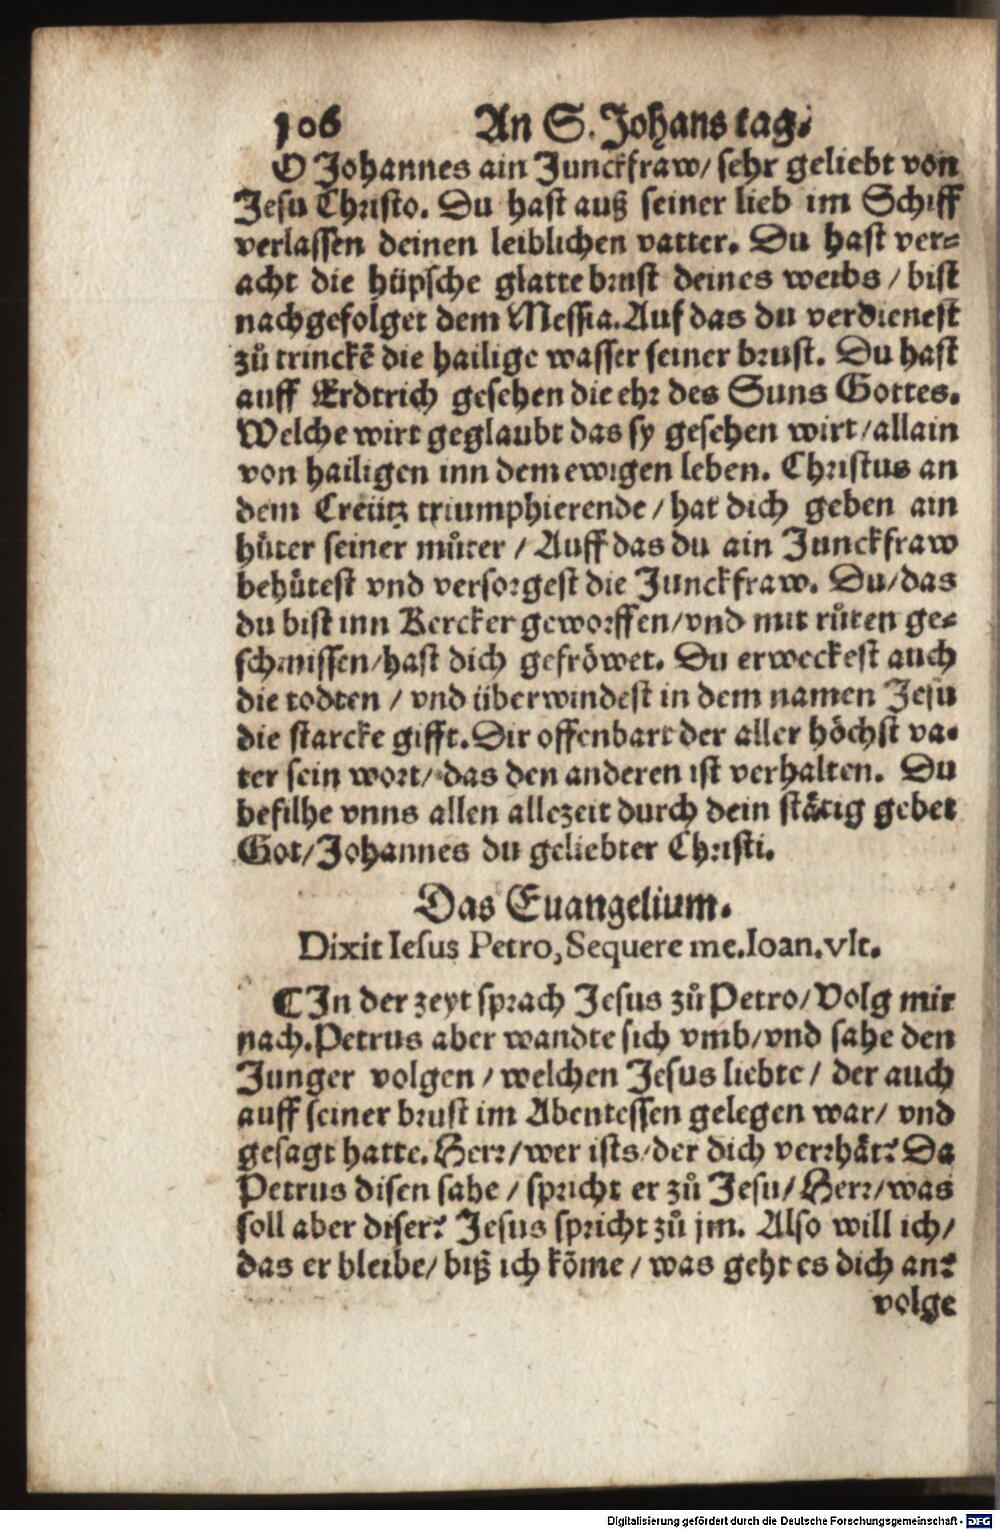 106 An S. Johans tag.
O Johannes ain Junckfraw/ sehr geliebt von
Jesu Christo. Du hast auß seiner lieb im Schiff
verlassen deinen leiblichen vatter. Du hast ver⸗
acht die hüpsche glatte brust deines weibs / bist
nachgefolget dem Messia. Auf das du verdienest
zů trinckẽ die hailige wasser seiner brust. Du hast
auff Erdtrich gesehen die ehr des Suns Gottes.
Welche wirt geglaubt das sy gesehen wirt/allain
von hailigen inn dem ewigen leben. Christus an
dem Creütz triumphierende / hat dich geben ain
hůter seiner můter / Auff das du ain Junckfraw
behůtest vnd versorgest die Junckfraw. Du/das
du bist inn Kercker geworffen/vnd mit růten ge⸗
schmissen/hast dich gefröwet. Du erweckest auch
die todten / vnd überwindest in dem namen Jesu
die starcke gifft. Dir offenbart der aller höchst va⸗
ter sein wort/ das den anderen ist verhalten. Du
befilhe vnns allen allezeit durch dein stätig gebet
Got/Johannes du geliebter Christi.
Das Euangelium.
Dixit Iesus Petro, Sequere me. Ioan. vlt.
¶ In der zeyt sprach Jesus zů Petro/Volg mir
nach. Petrus aber wandte sich vmb/vnd sahe den
Junger volgen / welchen Jesus liebte / der auch
auff seiner brust im Abentessen gelegen war/ vnd
gesagt hatte. Herr/wer ists/der dich verrhät? Da
Petrus disen sahe / spricht er zů Jesu/Herr/was
soll aber diser? Jesus spricht zů jm. Also will ich/
das er bleibe/ biß ich kõme / was geht es dich an?
volge
Digitalisierung gefördert durch die Deutsche Forschungsgemeinschaft - DFG